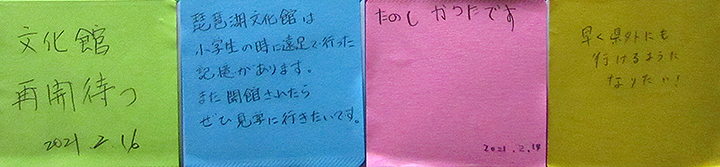 文化館
再開待つ
2021.2.16
琵琶湖文化館は
小学生の時に遠足で行った
記憶があります。
また開館されたら
ぜひ見学に行きたいです。
たのしかったです
2021.2.18
早く県外にも
行けるように
なりたい!